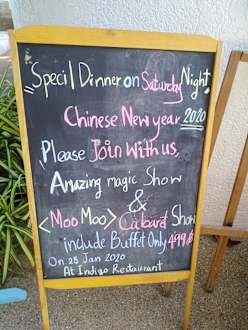 "Specil Dinner on Saturday Night"
Chinese New year 2020
Please Join with us,
Amazing magic Show
&
<Moo Moo> Cabaret Show
include Buffet Only 499.-B
On 25 Jan 2020
At Indigo Restaurant